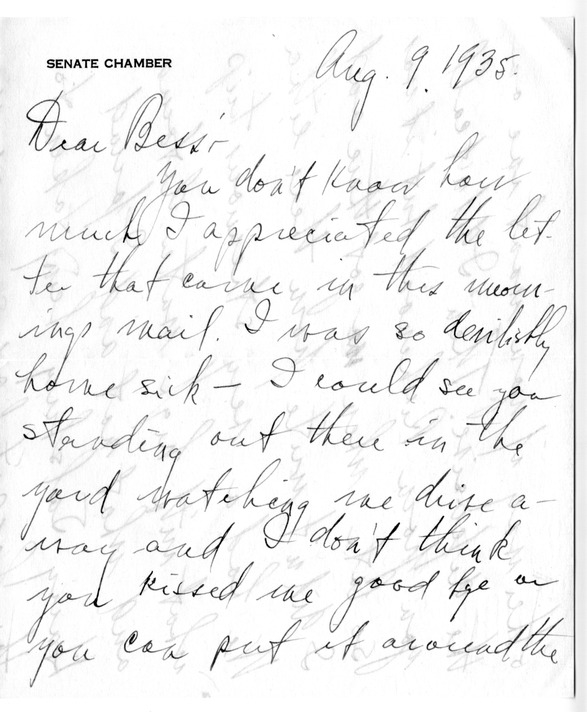 SENATE CHAMBER
Aug. 9, 1935.
Dear Bess:-
You don't know how
much I appreciated the let-
ter that came in this morn-
ings mail. I was so devilishly
home sick – I could see you
standing out there in the
yard watching me drive a-
way and I don't think
you kissed me good bye or
you can put it around the